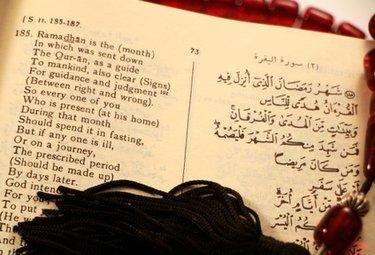 [S II. 185-187.
73
185. Ramadhān is the (month)
In which was sent down
The Qur-ān, as a guide
To mankind, also clear (Signs)
For guidance and judgment
(Between right and wrong).
So every one of you
Who is present (at his home)
During that month
Should spend it in fasting,
But if any one is ill,
Or on a journey,
The prescribed period
(Should be made up)
By days later.
God
For you
To put
(He
The
(٢) سورة البقرة
شَهْرُ رَمَضَانَ الَّذِي أُنْزِلَ فِيهِ
الْقُرْآنُ هُدًى لِلنَّاسِ
وَبَيِّنٰتٍ مِنَ الْهُدٰى وَالْفُرْقَانِ
فَمَنْ شَهِدَ مِنْكُمُ الشَّهْرَ فَلْيَصُمْهُ
وَمَنْ كَانَ مَرِيضًا
عَلٰى سَفَرٍ
مِنْ أَيَّامٍ أُخَرَ
بِكُمُ الْيُسْرَ